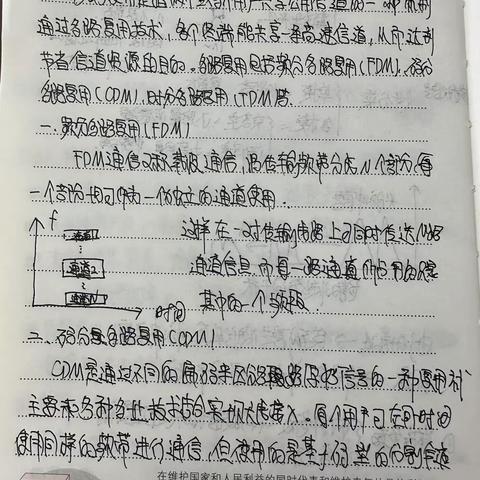 通过多路复用技术，各个终端能共享一条高速信道，从而达到
节省信道资源的目的。多路复用包括频分多路复用（FDM），码分
多路复用（CDM），时分多路复用（TDM）等。
一、频分多路复用（FDM）
FDM通信又称载波通信，将传输频带分成N个部分，每
一个部分均可作为一个独立的通道使用。
f
通道1
通道2
通道N
时间
这样在一对传输线路上可同时传送N路
通道信息，而每一路通道所占用的只是
其中的一个频段。
二、码分多路复用（CDM）
CDM是通过不同的编码来区分各路原始信号的一种复用
主要和各种多址技术结合
每个用户可在同时间
使用同样的频带进行通信，但使用的是基于码型的
在维护国家和人民利益的同时